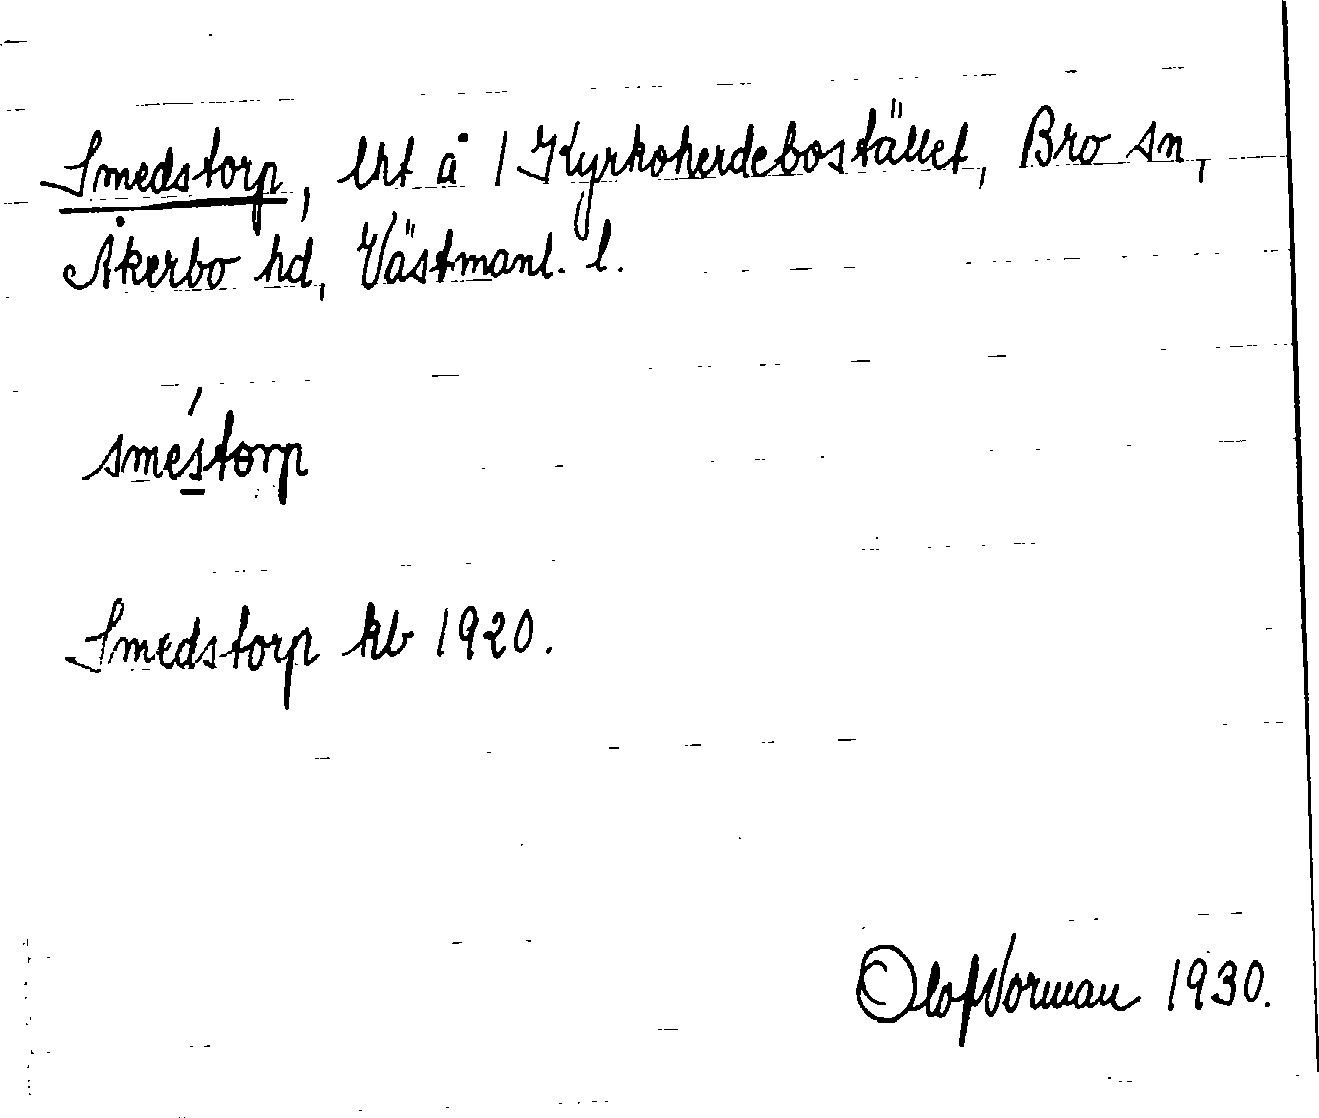 Smedstorp, lht å 1 Kyrkoherdebostället, Bro sn,
Åkerbo hd, Västmanl. l.
sme´storp
Smedstorp kb 1920.
Olof Norman 1930.